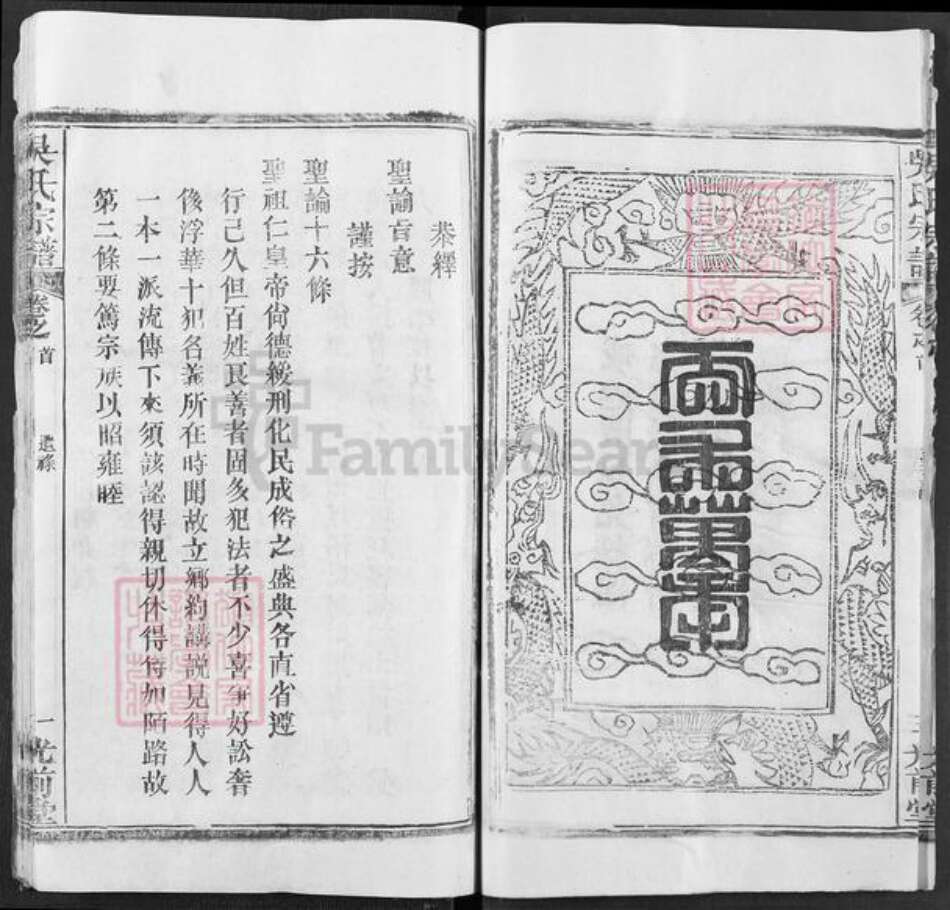 吳氏宗譜
恭繹
聖諭旨意
謹按
聖諭十六條
聖祖仁皇帝尙德緩刑化民成俗之盛典各直省遵
行已久但百姓良善者固多犯法者不少喜爭好訟奢
後浮華十犯名義所在時聞故立鄉約講說見得人人
一本一派流傳下來須該認得親切休得待如陌路故
第二條要篤宗族以昭雍睦
吳氏宗譜
卷之首
遺祿
一
光前堂
FamilySearch